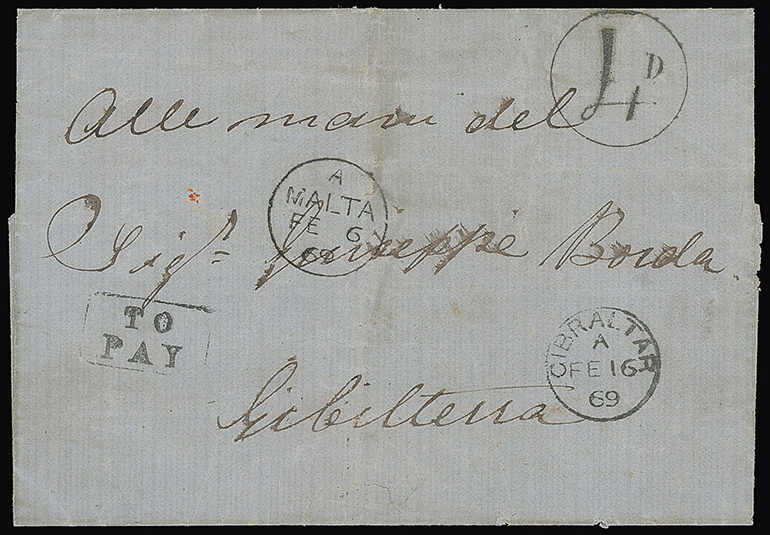 4D
Alle mani del
A
MALTA
FE 6
69
Sigr. Giuseppe Borda
TO
PAY
GIBRALTAR
A
FE 16
69
Gibilterra